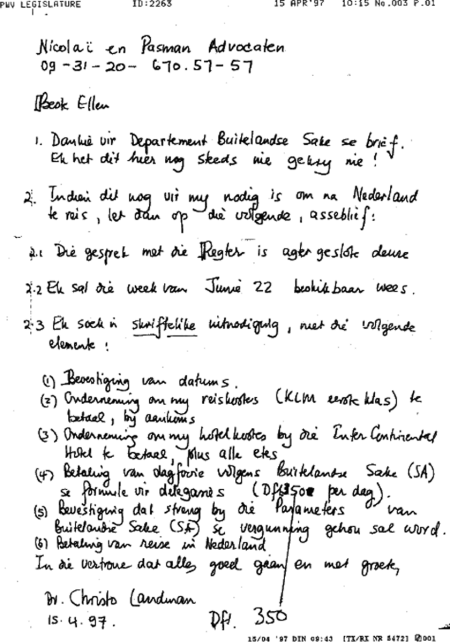 PWV LEGISLATURE ID:2263 15 APR'97 10:15 No.003 P.01
Nicolaï en Pasman Advocaten
09-31-20- 670.57-57
Ellen
1. Dankie vir Departement Buitelandse Sake se brief.
Ek het dit hier nog steeds nie gekry nie!
2. Indien dit nog vir my nodig is om na Nederland
te reis, let dan op die volgende, asseblief:
2.1 Die gesprek met die Regter is agter geslote deure
2.2 Ek sal die week van Junie 22 beskikbaar wees.
2.3 Ek soek 'n skriftelike uitnodiging, met die volgende
elemente:
(1) Bevestiging van datums.
(2) Onderneming om my reiskostes (KLM eerste klas) te
betaal, by aankoms
(3) Onderneming om my hotelkostes by die Inter Continental
Hotel te betaal, plus alle etes
(4) Betaling van dagfooie volgens Buitelandse Sake (SA)
se formule vir delegasies (Dfl350 per dag).
(5) Bevestiging dat streng by die Parameters van
Buitelandse Sake (SA) se vergunning gehou sal word.
(6) Betaling van reise in Nederland
In die vertroue dat alles goed gaan en met groete,
Dr. Christo Landman
15.4.97. Dfl. 350
15/04 '97 DIN 09:43 [TX/RX NR 5472] 001